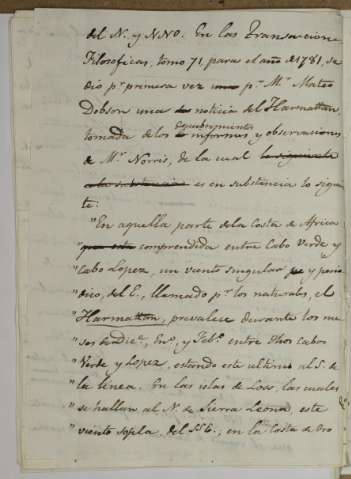 del N. y NNO. En las Transacciones
Filosoficas, tomo 71, para el año de 1781, se
dio pr primera vez pr Mr Mateo
Dobson una noticia del Harmattan,
tomada de los informes y observaciones
de Mr Norris, de la cual
es en substancia lo siguien
te:
"En aquella parte de la Costa de Africa
comprendida entre Cabo Verde y
"Cabo Lopez, un viento singular y perio
"dico, del E., llamado pr los naturales, el
"Harmattan, prevalece durante los me
"ses de Dice, Eno, y Febo entre dhos Cabos
"Verde y Lopez, estando este ultimo al S. de
"la linea. En las islas de Loss, las cuales
"se hallan al N. de Sierra Leona, este
"viento sopla del SSE.; en la Costa de Oro